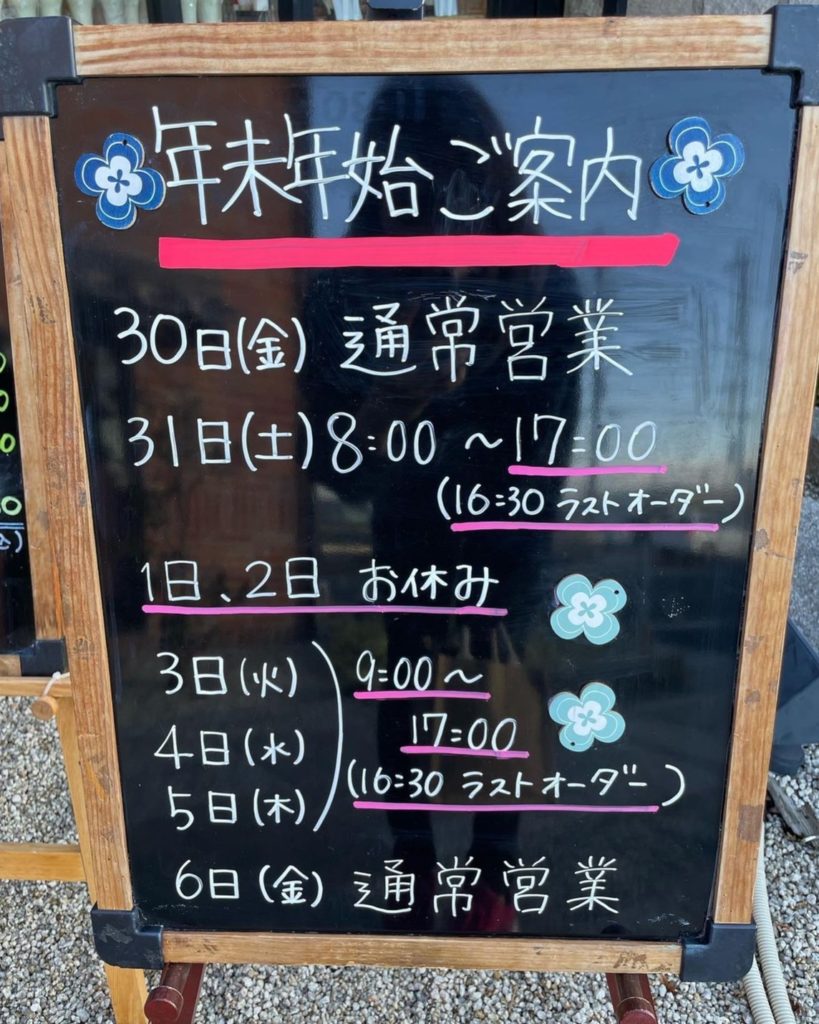 年末年始ご案内
30日(金) 通常営業
31日(土) 8:00 ～17:00
(16:30 ラストオーダー)
1日、2日 お休み
3日(火) 9:00～
4日(水) 17:00
5日(木) (16:30 ラストオーダー)
6日(金) 通常営業